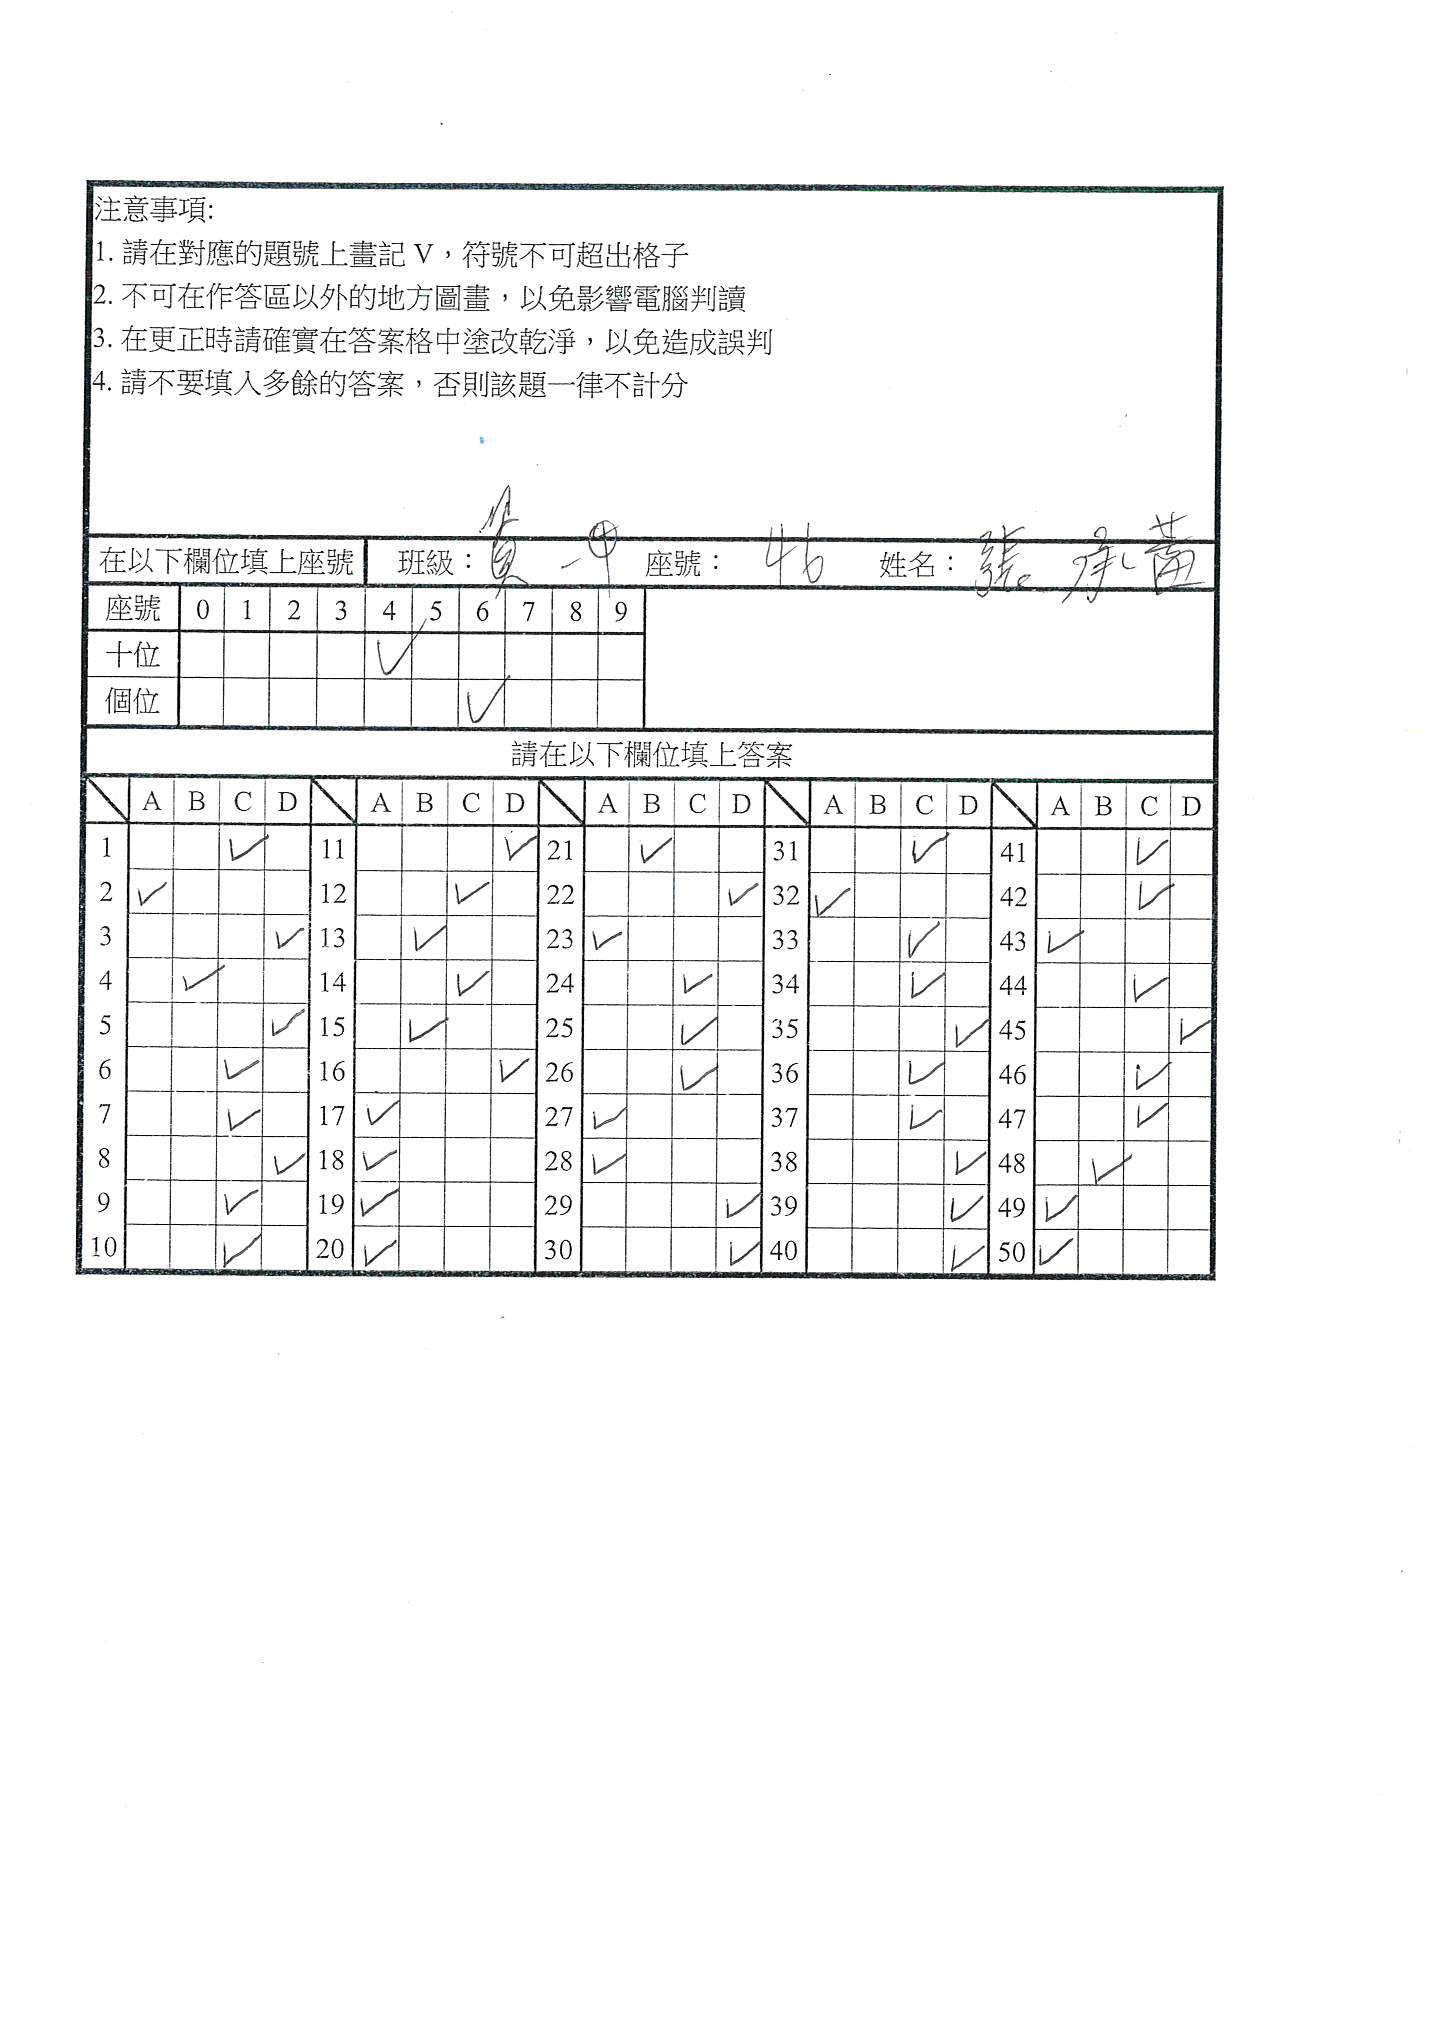 注意事項:
1. 請在對應的題號上畫記 V，符號不可超出格子
2. 不可在作答區以外的地方圖畫，以免影響電腦判讀
3. 在更正時請確實在答案格中塗改乾淨，以免造成誤判
4. 請不要填入多餘的答案，否則該題一律不計分
在以下欄位填上座號 班級： 一甲 座號： 46 姓名： 張承
座號 0 1 2 3 4 5 6 7 8 9
十位 ✓
個位 ✓
請在以下欄位填上答案
A B C D A B C D A B C D A B C D A B C D
1 ✓ 11 ✓ 21 ✓ 31 ✓ 41 ✓
2 ✓ 12 ✓ 22 ✓ 32 ✓ 42 ✓
3 ✓ 13 ✓ 23 ✓ 33 ✓ 43 ✓
4 ✓ 14 ✓ 24 ✓ 34 ✓ 44 ✓
5 ✓ 15 ✓ 25 ✓ 35 ✓ 45 ✓
6 ✓ 16 ✓ 26 ✓ 36 ✓ 46 ✓
7 ✓ 17 ✓ 27 ✓ 37 ✓ 47 ✓
8 ✓ 18 ✓ 28 ✓ 38 ✓ 48 ✓
9 ✓ 19 ✓ 29 ✓ 39 ✓ 49 ✓
10 ✓ 20 ✓ 30 ✓ 40 ✓ 50 ✓